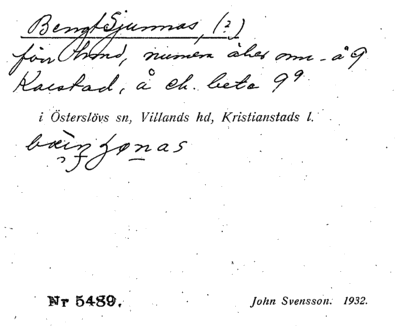 Bengt Sjunnas, (?)
förr strand, numera åker om. å 9
Karstad, å ek. beta 9⁹
i Österslövs sn, Villands hd, Kristianstads l.
Nr 5489.
John Svensson. 1932.